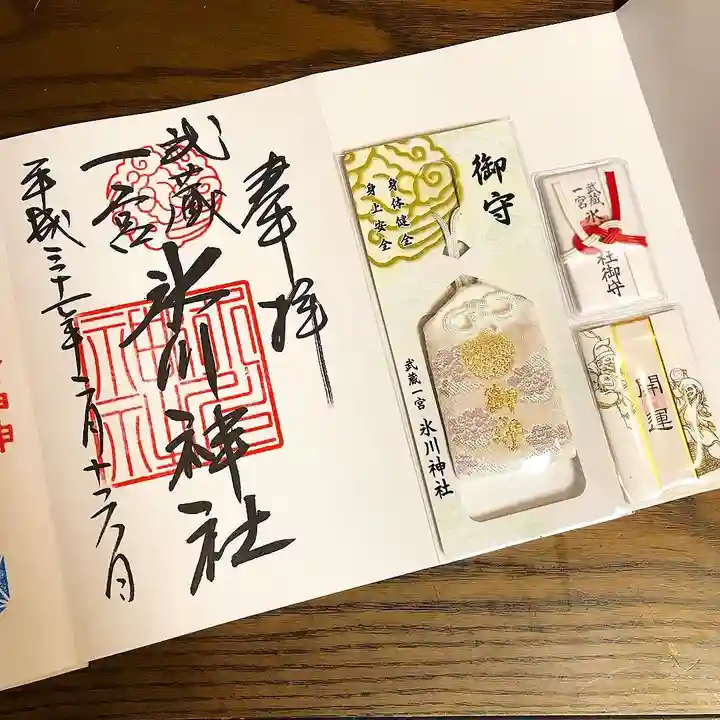 奉拝
武蔵
一宮
氷川神社
平成三十一年二月十六日
御守
身体健全
身上安全
御守
武蔵一宮 氷川神社
武蔵
一宮
氷
社御守
開運
神